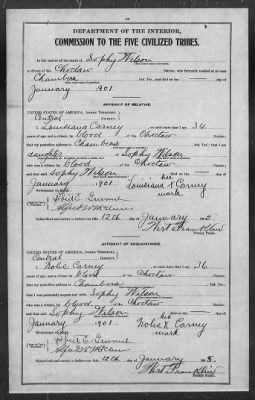 DEPARTMENT OF THE INTERIOR,
COMMISSION TO THE FIVE CIVILIZED TRIBES.
In the matter of the death of Sophy Wilson
a citizen of the Choctaw Nation, who formerly resided at or near
Chambers, Ind. Ter., and died on the day of
January, 1901
AFFIDAVIT OF RELATIVE
UNITED STATES OF AMERICA, INDIAN TERRITORY,
Central District.
I, Louisiana Carney, on oath state that I am 34
years of age and a citizen by blood of the Choctaw Nation;
that my postoffice address is Chambers, Ind. Ter.; that I am
daughter of Sophy Wilson
who was a citizen, by blood, of the Choctaw Nation;
and that said Sophy Wilson died on the day of
January, 1901
Louisiana X Carney
her
mark
Subscribed and sworn to before me this 12th day of January
Wirt Franklin
Notary Public.
AFFIDAVIT OF ACQUAINTANCE.
UNITED STATES OF AMERICA, INDIAN TERRITORY,
Central District.
I, Carney, on oath state that I am 36
years of age, and a citizen by blood of the Choctaw Nation;
that my postoffice address is Chambers, Ind. Ter.;
that I was personally acquainted with Sophy Wilson
who was a citizen, by blood, of the Choctaw Nation;
and that said Sophy Wilson died on the day of
January, 1901
his
X Carney
mark
Subscribed and sworn to before me this 12th day of January
Wirt Franklin
Notary Public.